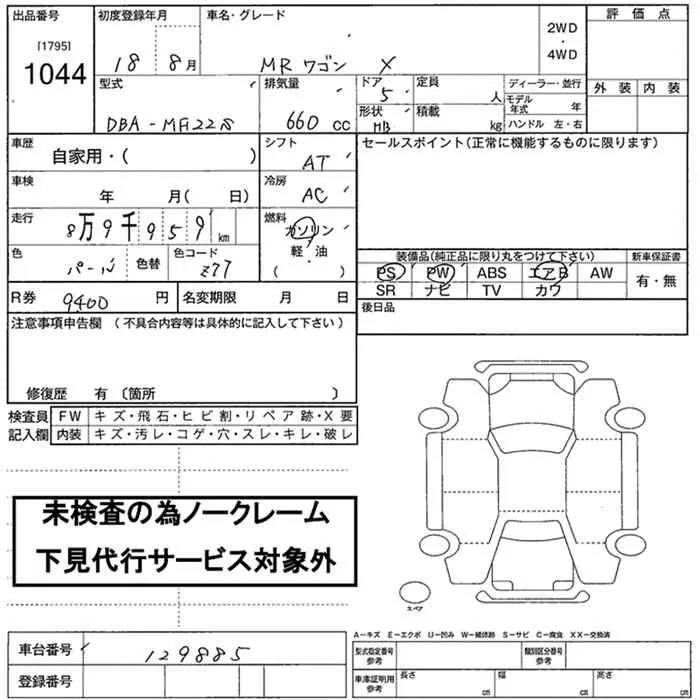 出品番号 初度登録年月 車名・グレード 2WD・4WD 評価点
[1795]
1044 18 8月 MR ワゴン X
型式 排気量 ドア 定員 ディーラー・並行 外装 内装
DBA-MF22S 660 cc 5 人 モデル年式 年
形状 積載 HB kg ハンドル 左・右
車歴 自家用・( ) シフト AT セールスポイント(正常に機能するものに限ります)
車検 年 月( 日) 冷房 AC
走行 8万9千959km 燃料 ガソリン 軽・油 ( )
色 パール 色替 色コード Z77
装備品(純正品に限り丸をつけて下さい) 新車保証書
PS PW ABS エアB AW 有・無
SR ナビ TV カワ
R券 9400 円 名変期限 月 日 後日品
注意事項申告欄 (不具合内容等は具体的に記入して下さい)
修復歴 有 〔箇所 〕
検査員 FW キズ・飛石・ヒビ割・リペア跡・X要
記入欄 内装 キズ・汚レ・コゲ・穴・スレ・キレ・破レ
未検査の為ノークレーム
下見代行サービス対象外
スペア
A−キズ E−エクボ U−凹み W−補修跡 S−サビ C−腐食 XX−交換済
車台番号 129885 型式指定番号 参考 類別区分番号 参考
登録番号 車庫証明用 参考 長さ cm 幅 cm 高さ cm